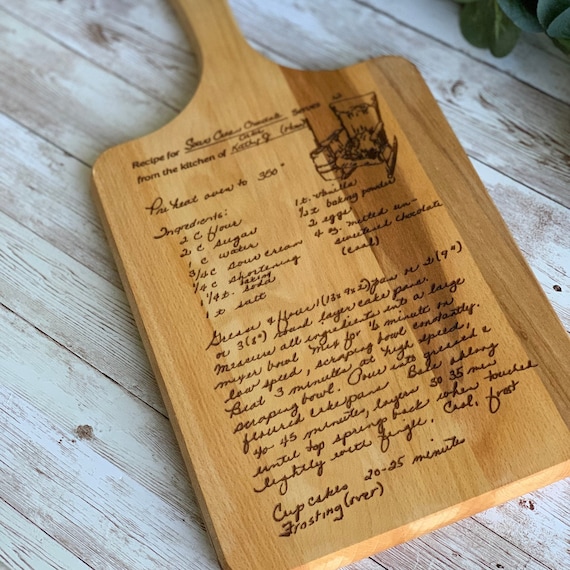 Recipe for Sour Cream Chocolate Serves
Cake
from the kitchen of Kathy J. (Mom)
Pre heat oven to 350°
Ingredients:
2 C flour
2 C sugar
1 C water
3/4 C sour cream
1/4 C shortening
1 1/4 t. baking soda
1 t salt
1 t. vanilla
1/2 t baking powder
2 eggs
4 oz. melted un-
sweetened chocolate
(cool)
Grease & flour 1 (13x9x2) pan or 2 (9")
or 3 (8") round layer cake pans.
Measure all ingredients into a large
mixer bowl. Mix for 1/2 minute on
low speed, scraping bowl constantly.
Beat 3 minutes at high speed,
scraping bowl. Pour into greased &
floured cake pans. Bake oblong
40-45 minutes, layers 30-35 min
until top spring back when touched
lightly with finger. Cool, frost
Cup cakes 20-25 minutes
Frosting (over)